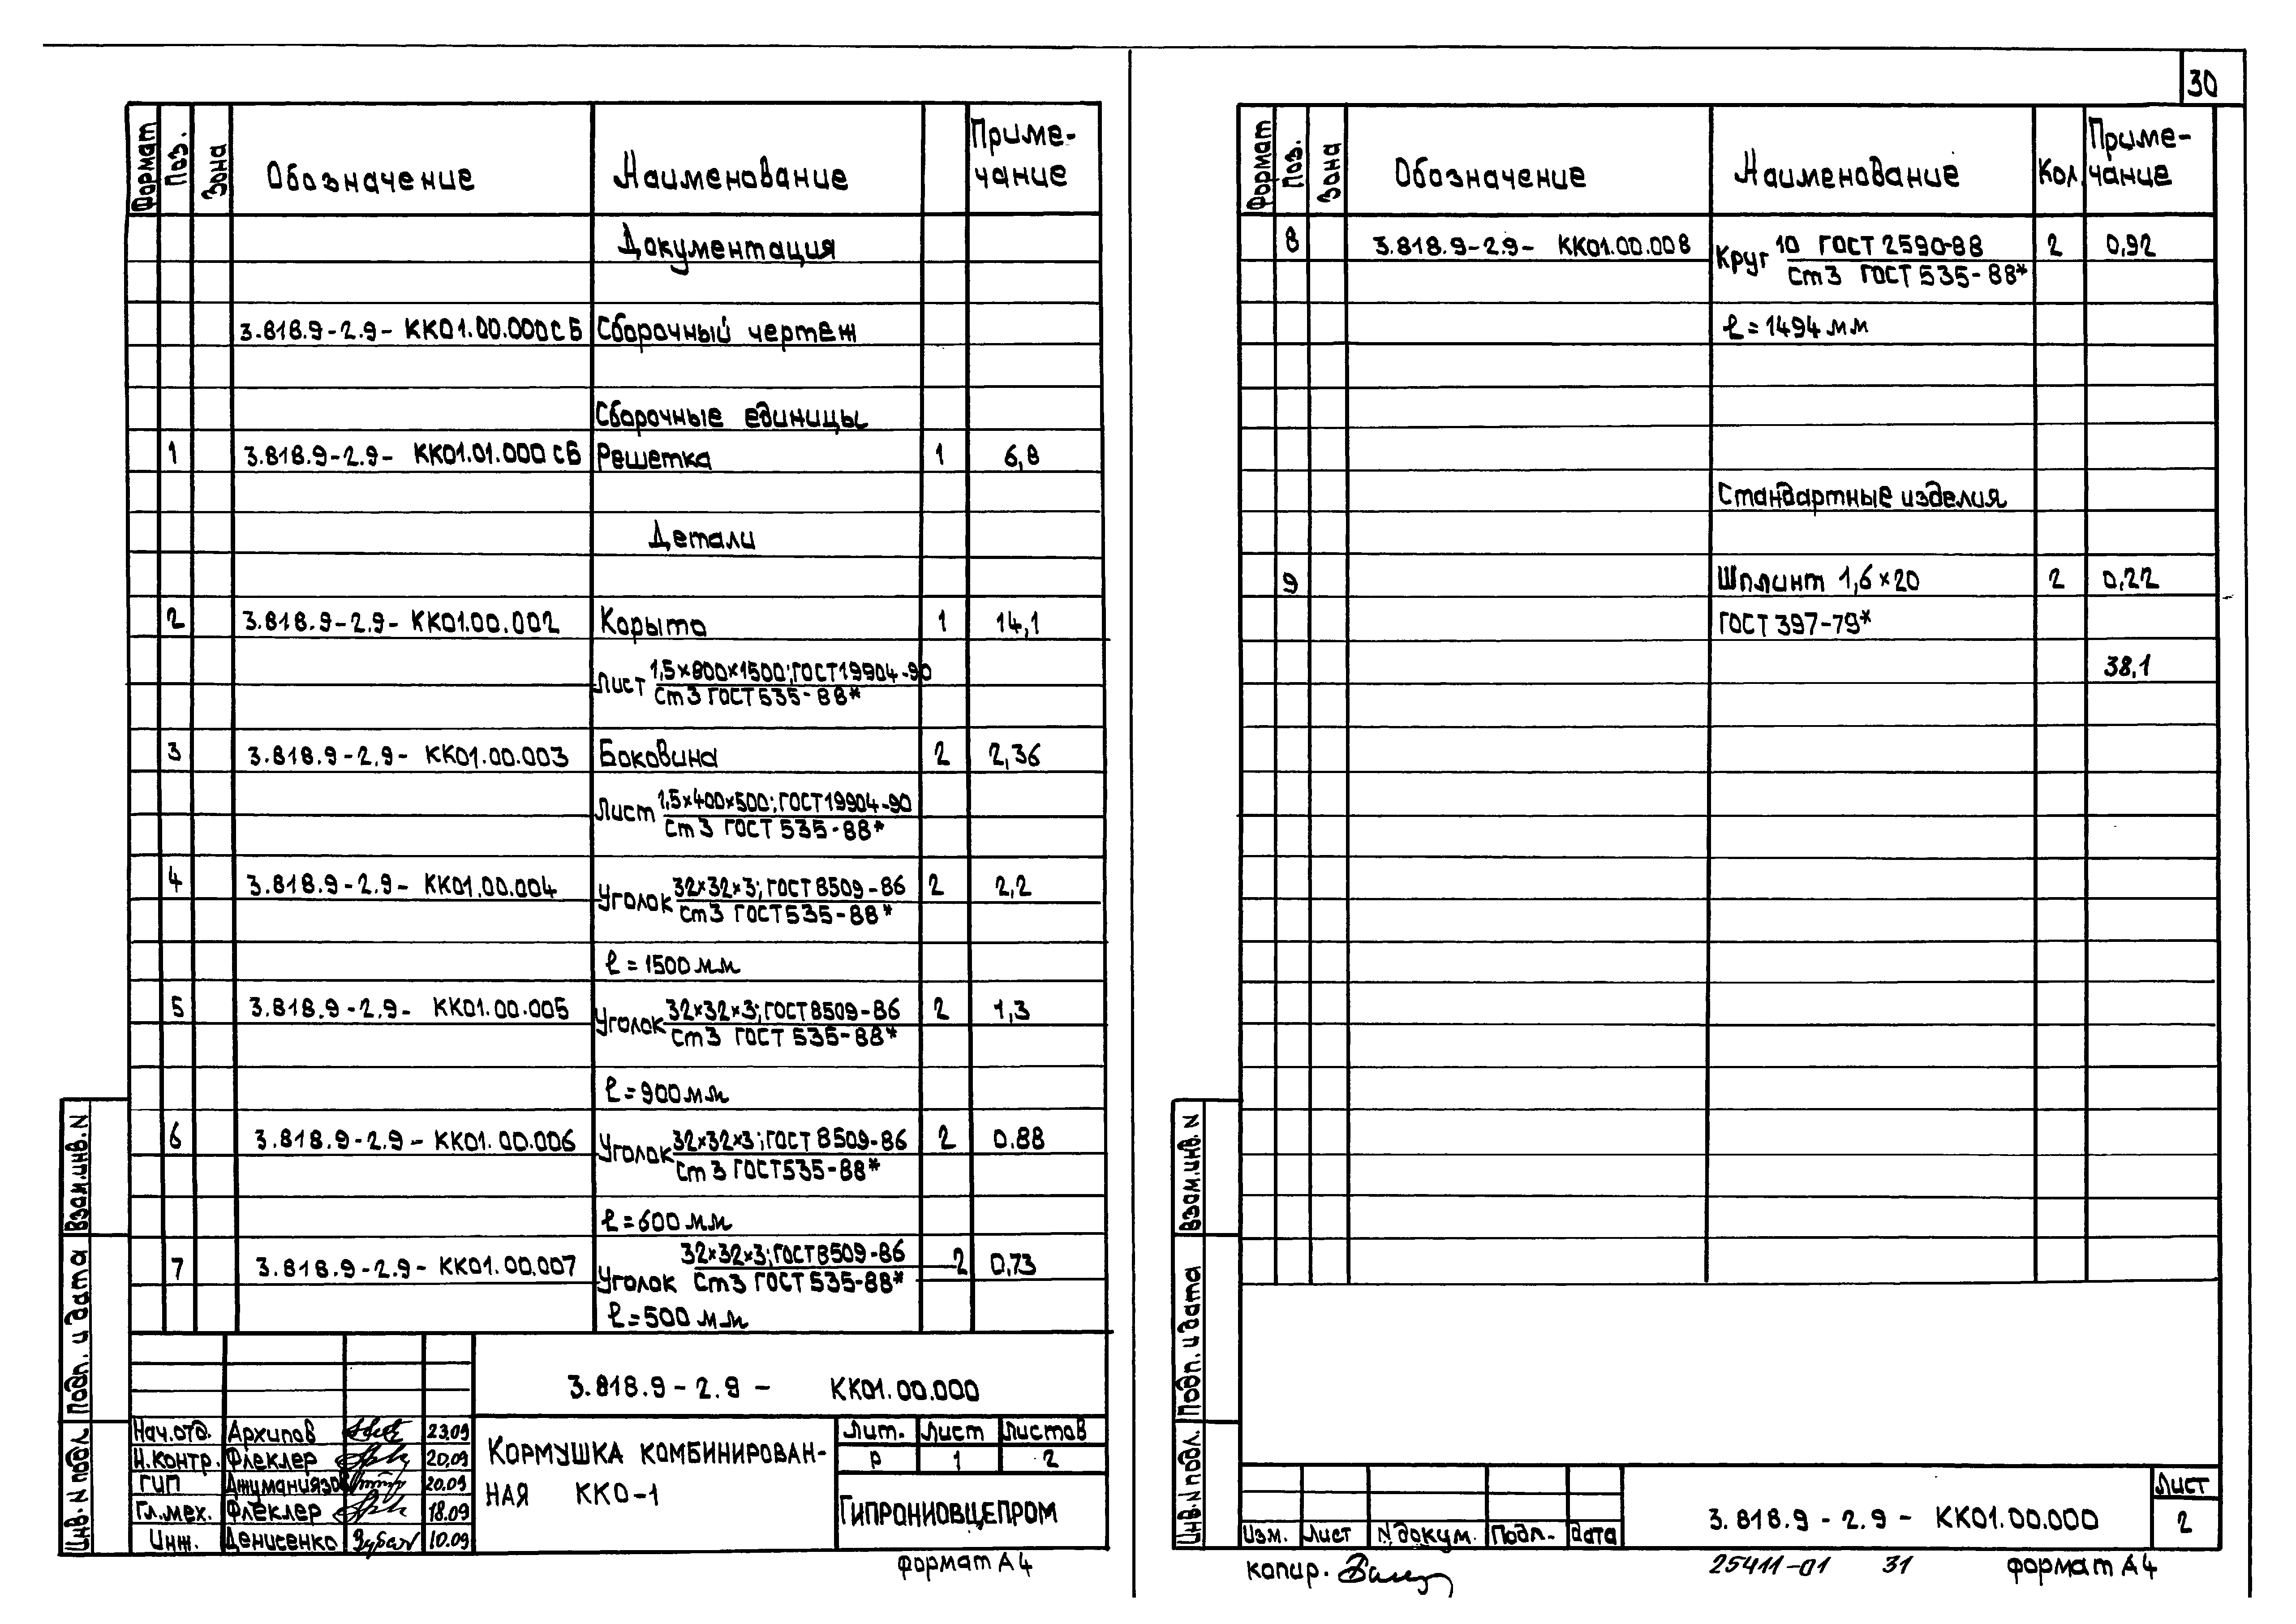 30
Формат
Поз.
Зона
Обозначение
Наименование
Приме-
чание
Документация
3.818.9-2.9- КК01.00.000СБ Сборочный чертеж
Сборочные единицы
1 3.818.9-2.9- КК01.01.000СБ Решетка 1 6,8
Детали
2 3.818.9-2.9- КК01.00.002 Корыто 1 14,1
Лист 1,5×800×1500; ГОСТ 19904-90
Ст3 ГОСТ 535-88*
3 3.818.9-2.9- КК01.00.003 Боковина 2 2,36
Лист 1,5×400×500; ГОСТ 19904-90
Ст3 ГОСТ 535-88*
4 3.818.9-2.9- КК01.00.004 Уголок 32×32×3; ГОСТ 8509-86 2 2,2
Ст3 ГОСТ 535-88*
ℓ=1500 мм
5 3.818.9-2.9- КК01.00.005 Уголок 32×32×3; ГОСТ 8509-86 2 1,3
Ст3 ГОСТ 535-88*
ℓ=900 мм
6 3.818.9-2.9- КК01.00.006 Уголок 32×32×3; ГОСТ 8509-86 2 0.88
Ст3 ГОСТ 535-88*
ℓ=600 мм
7 3.818.9-2.9- КК01.00.007 Уголок 32×32×3; ГОСТ 8509-86 2 0,73
Ст3 ГОСТ 535-88*
ℓ=500 мм
Взам.инв.N
Подп. и дата
Инв.N подл
3.818.9-2.9- КК01.00.000
Нач.отд. Архипов 23.09
Н.контр. Флеклер 20.09
ГИП Джуманиязо 20.09
Гл.мех. Флеклер 18.09
Инж. Денисенко 10.09
Кормушка комбинирован-
ная ККО-1
Лит. Лист Листов
Р 1 2
Гипрониовцепром
Формат А4
Формат
Поз.
Зона
Обозначение
Наименование
Кол.
Приме-
чание
8 3.818.9-2.9- КК01.00.008 Круг 10 ГОСТ 2590-88 2 0,92
Ст3 ГОСТ 535-88*
ℓ=1494 мм
Стандартные изделия
9 Шплинт 1,6×20 2 0,22
ГОСТ 397-79*
38,1
Взам.инв.N
Подп. и дата
Инв.N подл.
Изм. Лист N докум. Подп. Дата
3.818.9-2.9- КК01.00.000
Лист
2
Копир.
25411-01 31
Формат А4